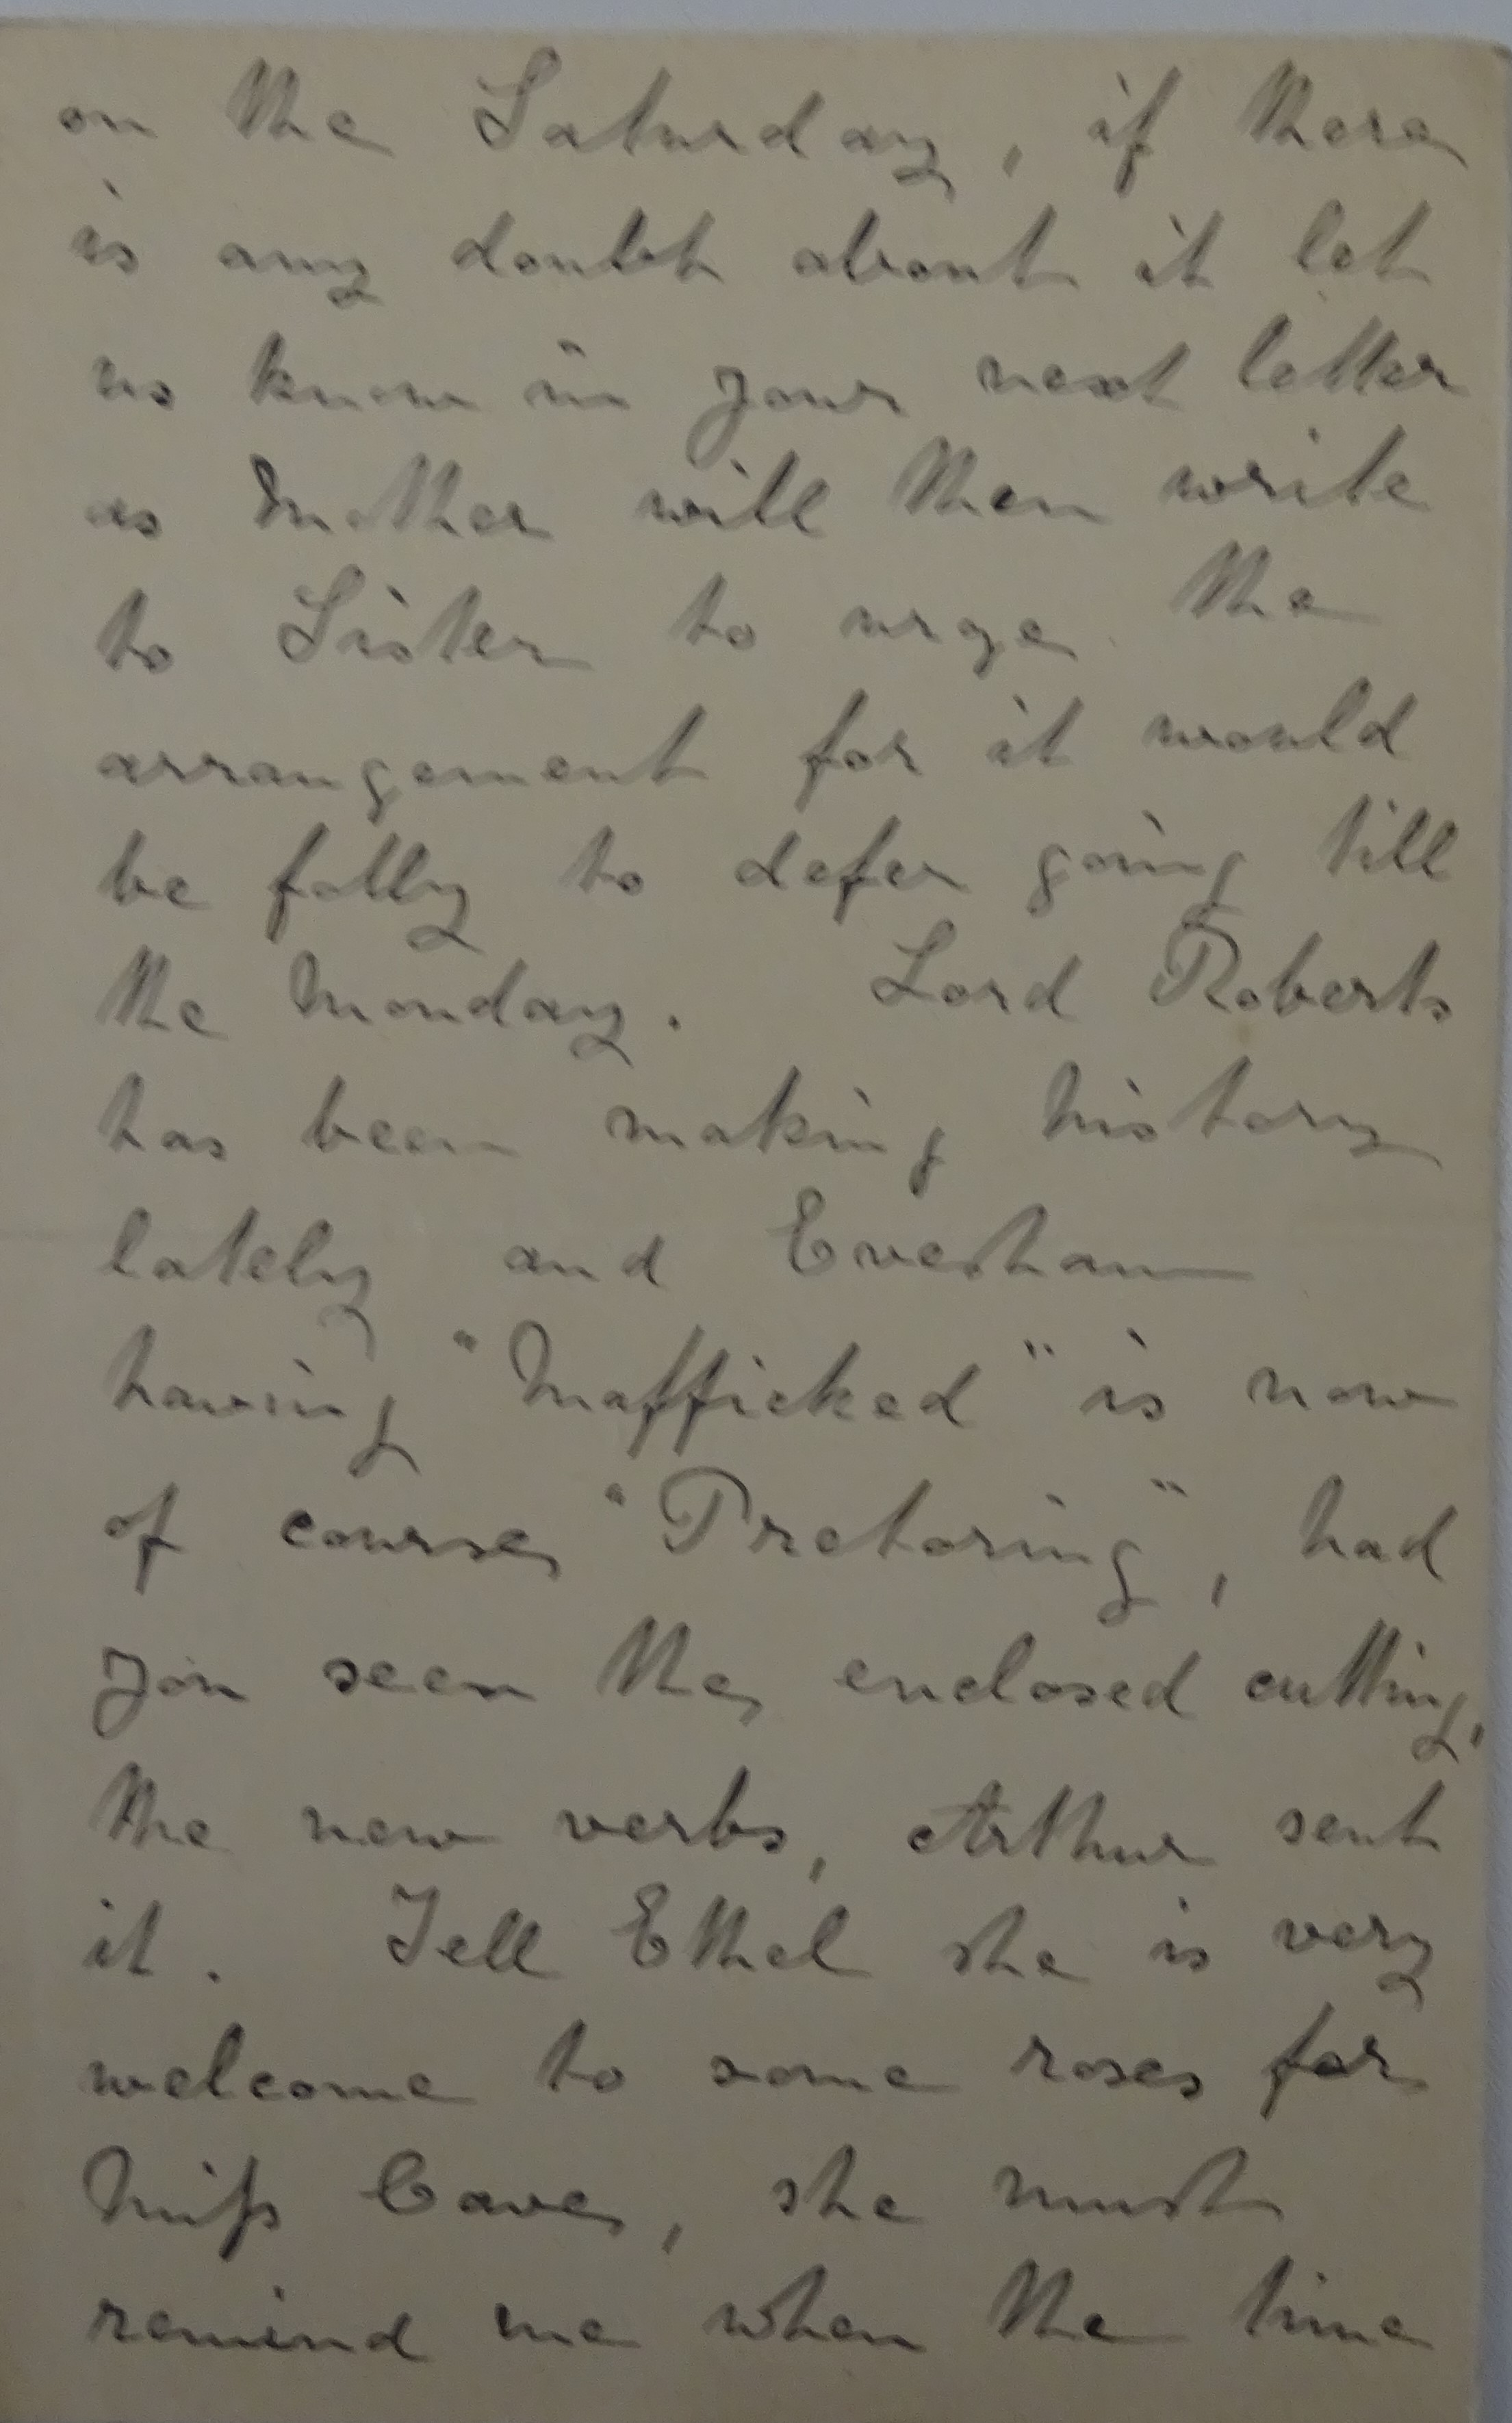 on the Saturday, if there
is any doubt about it let
us know in your next letter
as Mother will then write
to Sister to urge the
arrangement for it would
be folly to defer going till
the Monday. Lord Roberts
has been making history
lately and Evesham
having "Mafficked" is now
of course "Pretoring", had
you seen the enclosed cutting,
the new verbs, Arthur sent
it. Tell Ethel she is very
welcome to some roses for
Miss Cave, she must
remind me when the time